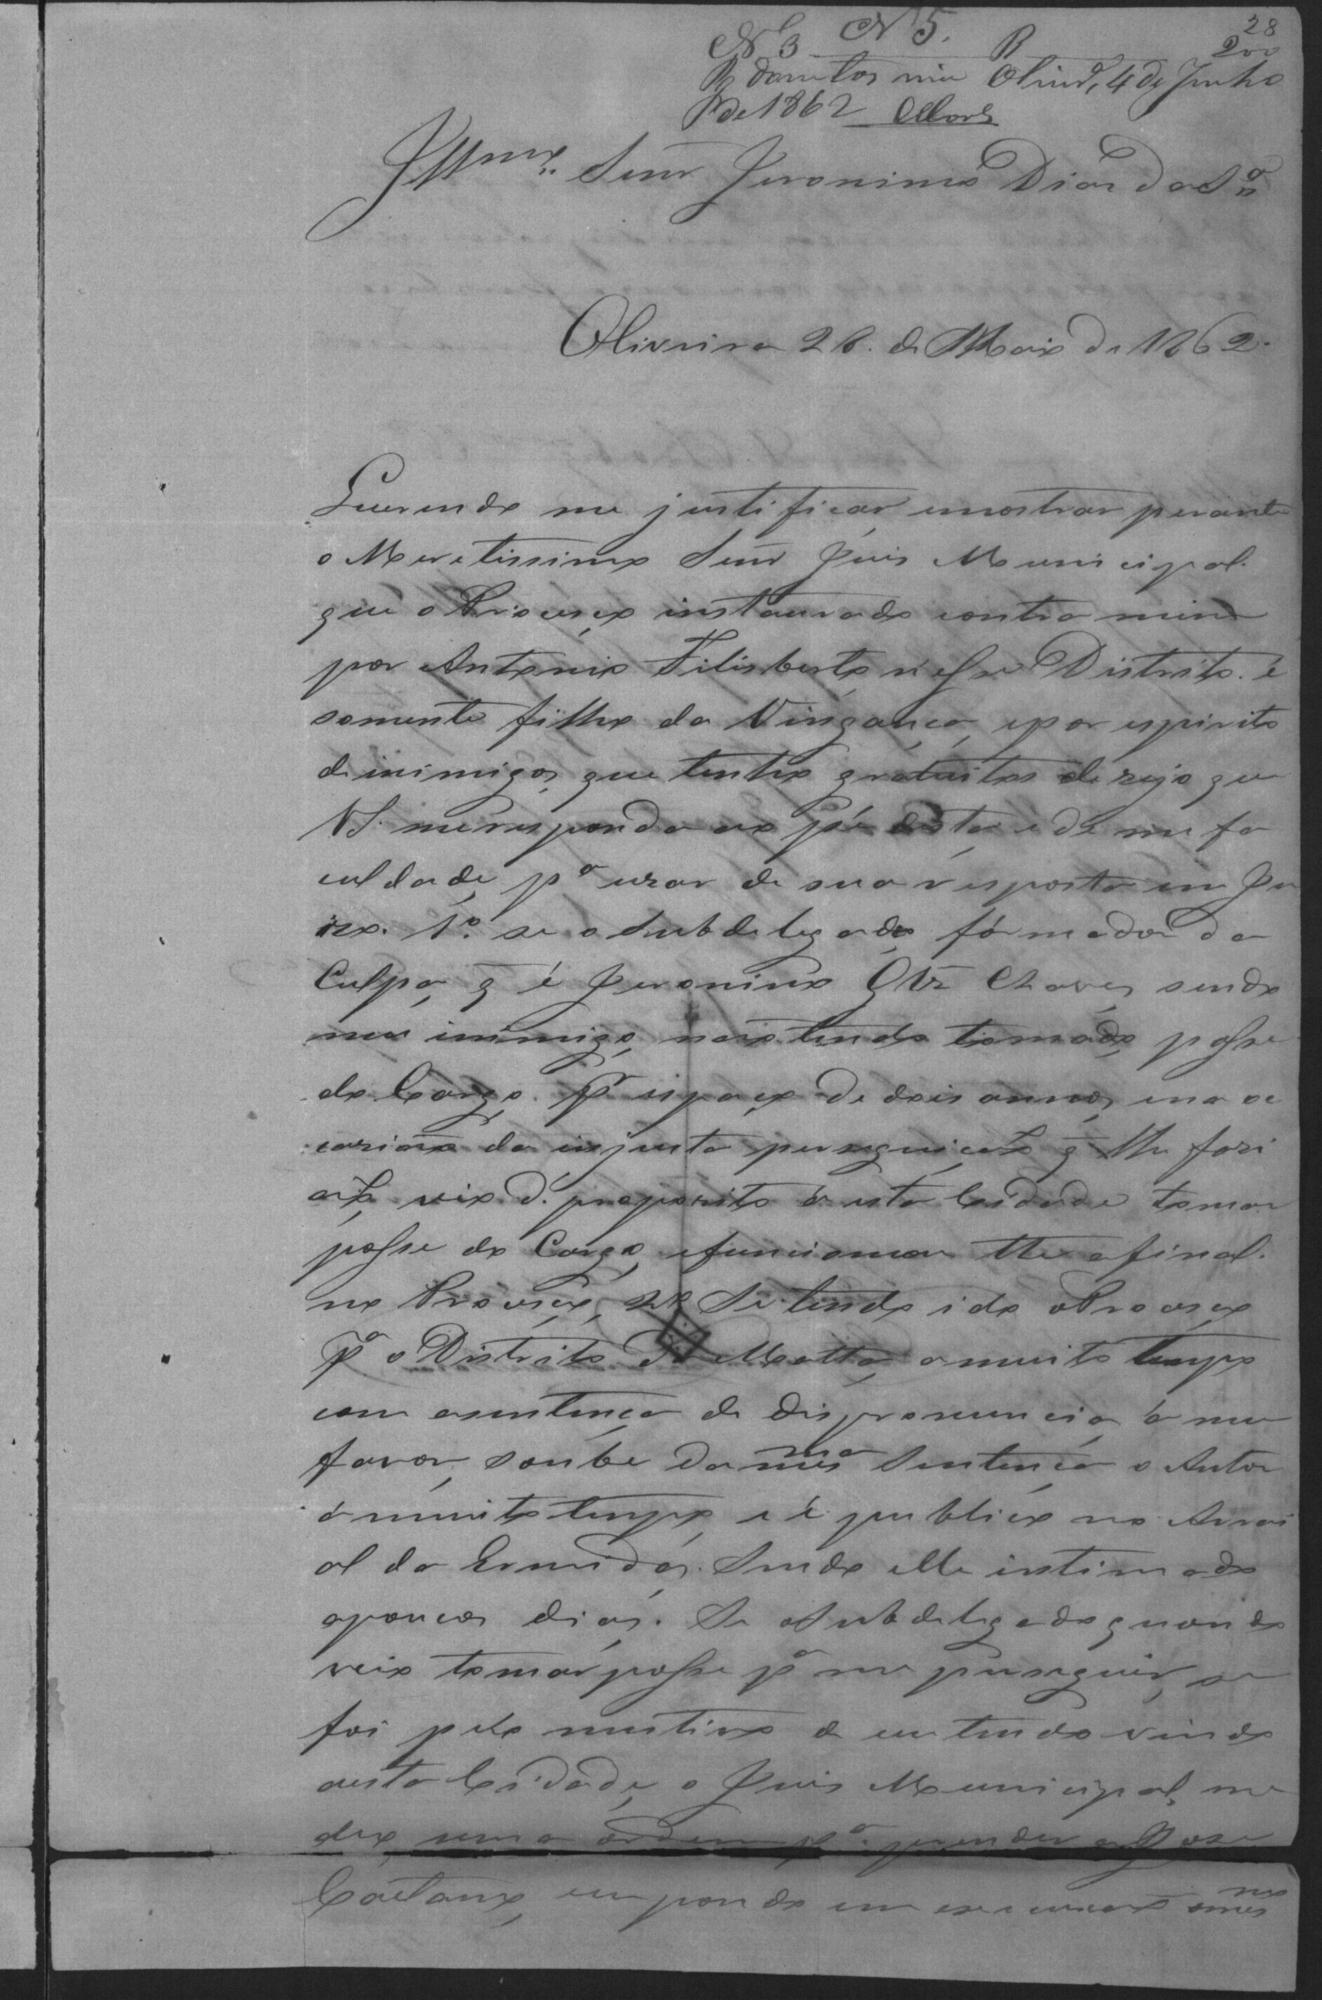 28
N 3 N 5. R 200
4 de Junho
de 1862
Illmo. Senr Jeronimo Dias da Sa
Oliveira 28. de Maio de 1862.
Querendo me justificar, emostrar perante
o Meretissimo Senr Juis Municipal.
que o Processo instaurado contra mim
por Antonio Filisberto n'esse Distrito. é
somente filho da Vingança, epor espirito
de inimigos, que tenho gratuitos dezejo que
VS. me responda ao pé desta e de me fa
culdade, pa uzar de sua resposta em Ju
izo. 1o. se o Subdelegado, fórmador da
Culpa, q̃ é Jeronimo Glz Chaves, sendo
meu inimigo, não tendo tomado posse
do Cargo. pr espaço de dois annos, na o
cazião da injusta perseguição q̃ lhe fori
ão, veio d. proposito á esta Cidade tomar
posse do Cargo, efuncionou the afinal.
no Processo, 2o Se tendo ido oProcesso
pa o Distrito da Matta, amuito tempo
com asentença de dispronuncia, á meu
favor, soube da mesma Sentença o Autor
á muito tempo, e é publico no Arrai
al da Ermida, Sendo elle intimado
apoucos dias. Se oSubdelegado quando
veio tomar posse pa me perseguir, se
foi pelo mutivo de eu tendo vindo
aesta Cidade, o Juis Municipal, me
deo uma ordem pa. prender a Jose
Caetano, eu pondo em execução omesmo